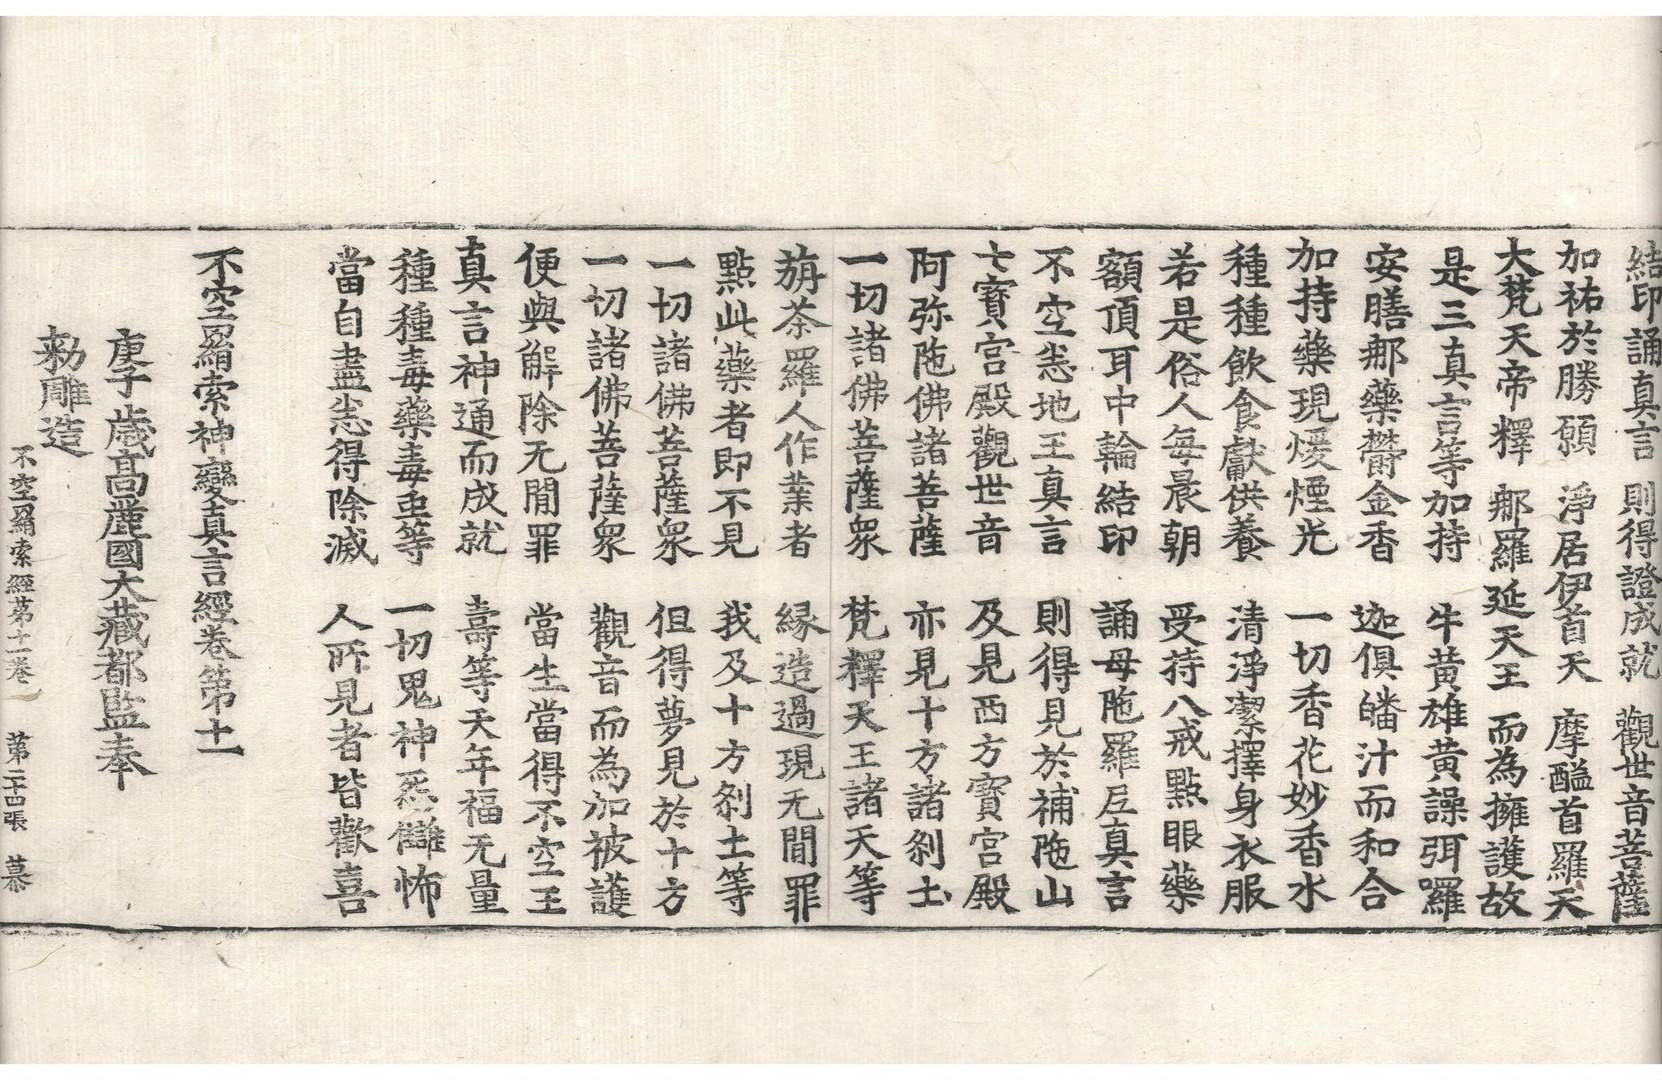 結印誦真言　則得證成就　觀世音菩薩
加祐於勝願　淨居伊首天　摩醯首羅天
大梵天帝釋　那羅延天王　而為擁護故
是三真言等加持　牛黃雄黃譟弭囉
安膳那藥欝金香　迦俱皤汁而和合
加持藥現煖煙光　一切香花妙香水
種種飲食獻供養　清淨潔擇身衣服
若是俗人每晨朝　受持八戒點眼藥
額頂耳中輪結印　誦母陁羅尼真言
不空悉地王真言　則得見於補陁山
七寶宮殿觀世音　及見西方寶宮殿
阿弥陁佛諸菩薩　亦見十方諸刹土
一切諸佛菩薩衆　梵釋天王諸天等
旃茶羅人作業者　緣造過現无間罪
點此藥者即不見　我及十方刹土等
一切諸佛菩薩衆　但得夢見於十方
一切諸佛菩薩衆　觀音而為加被護
便與解除无間罪　當生當得不空王
真言神通而成就　壽等天年福无量
種種毒藥毒䖝等　一切鬼神惡讎怖
當自盡悉得除滅　人所見者皆歡喜
不空羂索神變真言經卷第十一
庚子歲高麗國大藏都監奉
勑雕造
不空羂索經苐十一卷　苐二十四張　慕